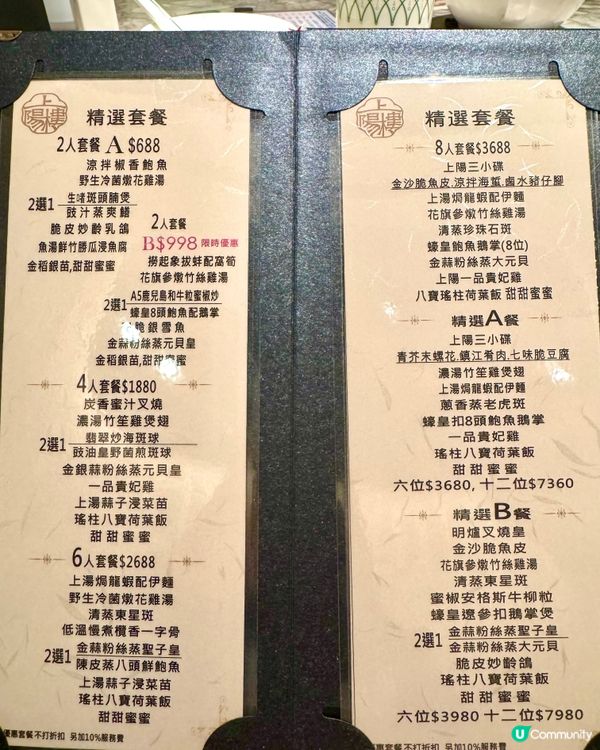 上陽樓
精選套餐
2人套餐 A $688
涼拌椒香鮑魚
野生冷菌燉花雞湯
2選1
生啫斑頭腩煲
豉汁蒸爽鱔
脆皮妙齡乳鴿
魚湯鮮竹勝瓜浸魚腐
金稻銀苗,甜甜蜜蜜
2人套餐
B$998 限時優惠
撈起象拔蚌配窩筍
花旗參燉竹絲雞湯
2選1
A5鹿兒島和牛粒蜜椒炒
蠔皇8頭鮑魚配鵝掌
脆銀雪魚
金蒜粉絲蒸元貝皇
金稻銀苗,甜甜蜜蜜
4人套餐$1880
炭香蜜汁叉燒
濃湯竹笙雞煲翅
2選1
翡翠炒海斑球
豉油皇野菌煎斑球
金銀蒜粉絲蒸元貝皇
一品貴妃雞
上湯蒜子浸菜苗
瑤柱八寶荷葉飯
甜甜蜜蜜
6人套餐$2688
上湯焗龍蝦配伊麵
野生冷菌燉花雞湯
清蒸東星斑
低溫慢煮欖香一字骨
2選1
金蒜粉絲蒸聖子皇
陳皮蒸八頭鮮鮑魚
上湯蒜子浸菜苗
瑤柱八寶荷葉飯
甜甜蜜蜜
優惠套餐不打折扣 另加10%服務費
上陽樓
精選套餐
8人套餐$3688
上陽三小碟
金沙脆魚皮.涼拌海蜇.鹵水豬仔腳
上湯焗龍蝦配伊麵
花旗參燉竹絲雞湯
清蒸珍珠石斑
蠔皇鮑魚鵝掌(8位)
金蒜粉絲蒸大元貝
上陽一品貴妃雞
八寶瑤柱荷葉飯 甜甜蜜蜜
精選A餐
上陽三小碟
青芥末螺花.鎮江肴肉.七味脆豆腐
濃湯竹笙雞煲翅
上湯焗龍蝦配伊麵
蔥香蒸老虎斑
蠔皇扣8頭鮑魚鵝掌
一品貴妃雞
瑤柱八寶荷葉飯
甜甜蜜蜜
六位$3680, 十二位$7360
精選B餐
明爐叉燒皇
金沙脆魚皮
花旗參燉竹絲雞湯
清蒸東星斑
蜜椒安格斯牛柳粒
蠔皇遼參扣鵝掌煲
2選1
金蒜粉絲蒸聖子皇
金蒜粉絲蒸大元貝
脆皮妙齡鴿
瑤柱八寶荷葉飯
甜甜蜜蜜
六位$3980 十二位$7980
優惠套餐不打折扣 另加10%服務費
U Community